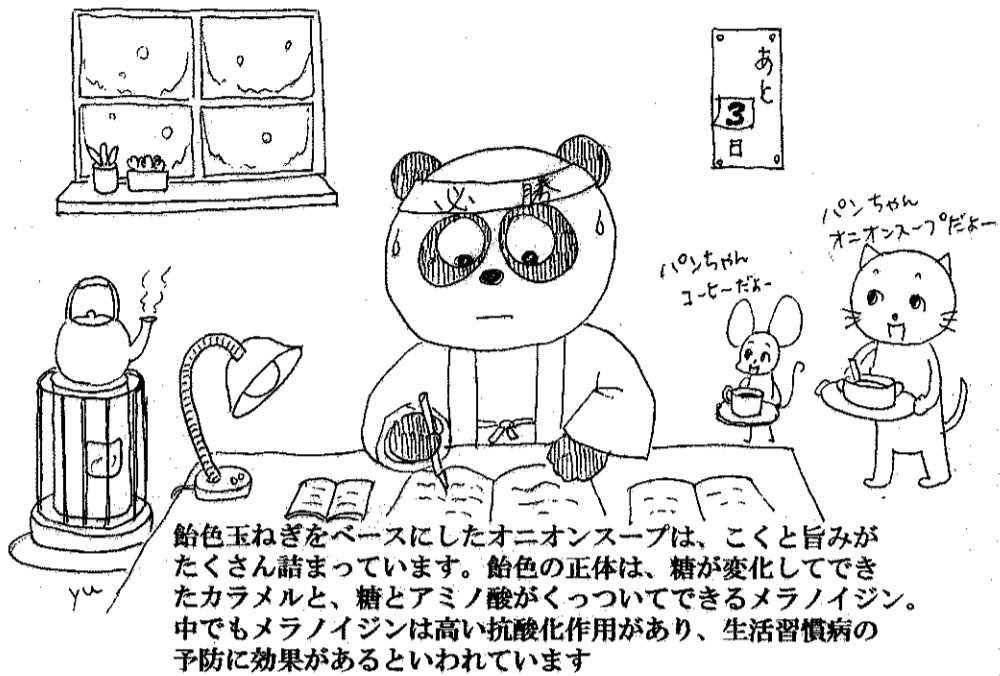 あと
3
日
必 勝
パンちゃん
オニオンスープだよー
パンちゃん
コーヒーだよー
飴色玉ねぎをベースにしたオニオンスープは、こくと旨みが
たくさん詰まっています。飴色の正体は、糖が変化してでき
たカラメルと、糖とアミノ酸がくっついてできるメラノイジン。
中でもメラノイジンは高い抗酸化作用があり、生活習慣病の
予防に効果があるといわれています
yu